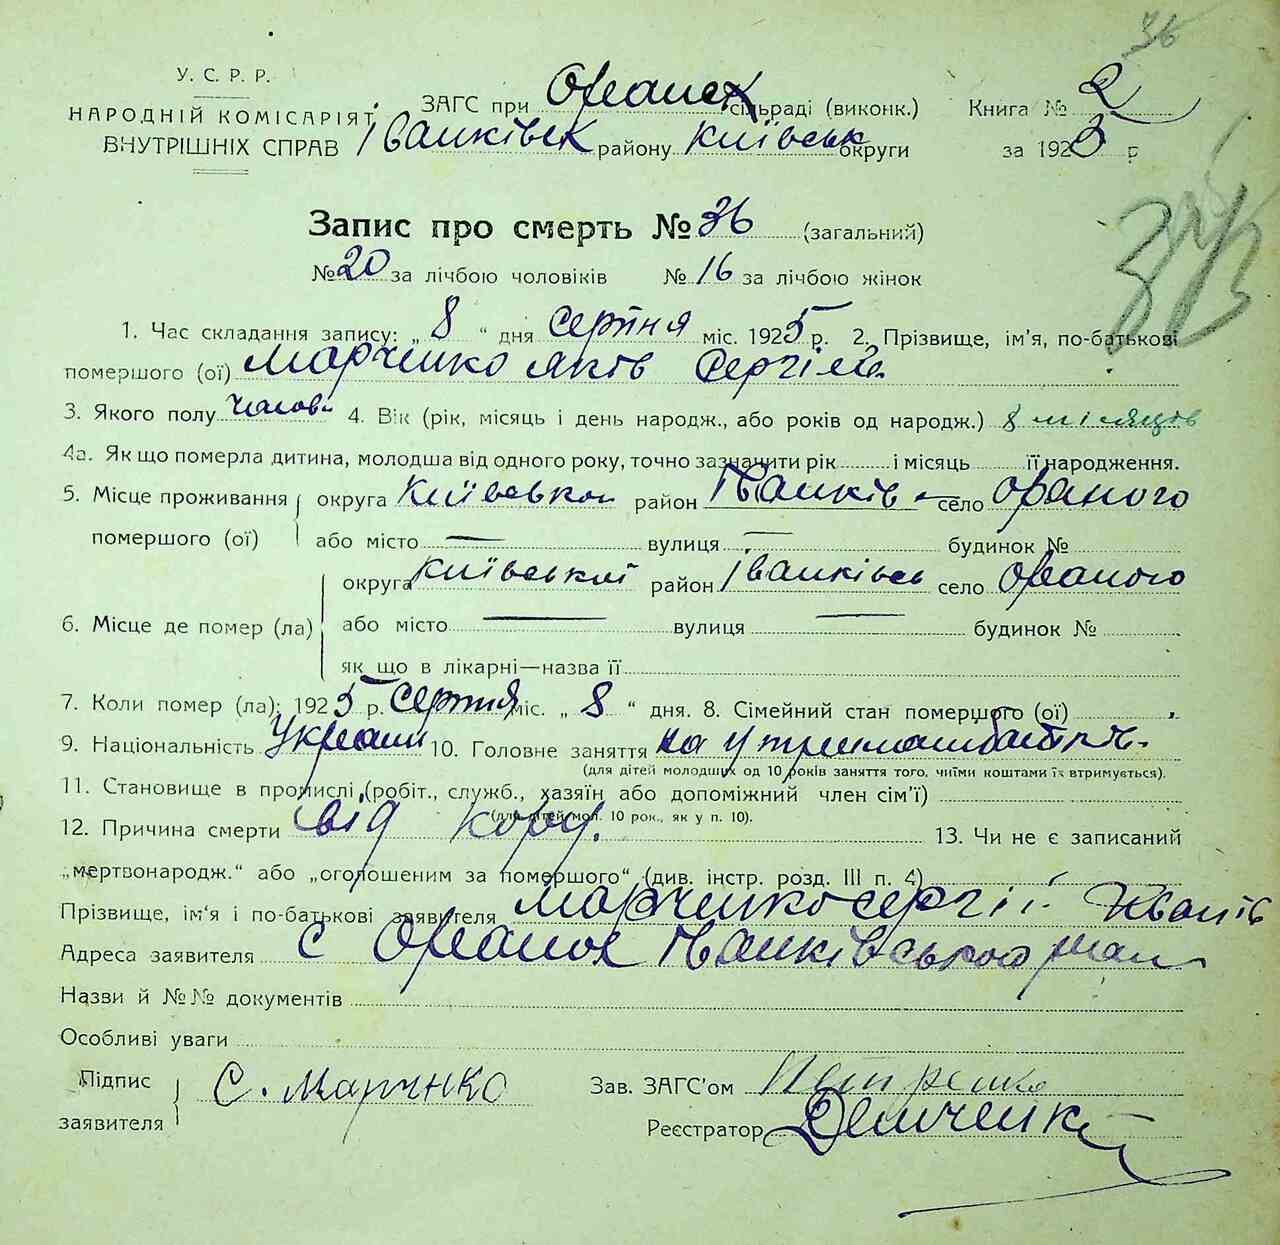 36
У. С. Р. Р.
НАРОДНІЙ КОМІСАРІЯТ
ВНУТРІШНІХ СПРАВ
ЗАГС при Оранск сільраді (виконк.)
Іванківск району Київськ округи
Книга № 2
за 1925 р
Запис про смерть № 36 (загальний)
№ 20 за лічбою чоловіків № 16 за лічбою жінок
1. Час складання запису: „ 8 “ дня серпня міс. 1925 р. 2. Прізвище, ім'я, по-батькові
помершого (ої) Марченко Яків Сергієв
3. Якого полу чолов. 4. Вік (рік, місяць і день народж., або років од народж.) 8 місяців
4а. Як що померла дитина, молодша від одного року, точно зазначити рік і місяць її народження.
5. Місце проживання помершого (ої) округа Київської район Іванків село Ораного
або місто — вулиця — будинок №
6. Місце де помер (ла) округа Київської район Іванківсь село Ораного
або місто — вулиця — будинок №
як що в лікарні—назва її
7. Коли помер (ла): 1925 р. серпня міс. „ 8 “ дня. 8. Сімейний стан помершого (ої)
9. Національність Україн 10. Головне заняття на утриман батьків
(для дітей молодших од 10 років заняття того, чиїми коштами їх втримується).
11. Становище в промислі (робіт., служб., хазяїн або допоміжний член сім'ї)
(для дітей мол. 10 рок., як у п. 10).
12. Причина смерти від кору. 13. Чи не є записаний
„мертвонародж.“ або „оголошеним за помершого“ (див. інстр. розд. III п. 4)
Прізвище, ім'я і по-батькові заявителя Марченко Сергій Іванів
Адреса заявителя с Ораное Іванківського рай
Назви й №№ документів
Особливі уваги
Підпис заявителя С. Марчнко
Зав. ЗАГС'ом Петренко
Реєстратор Демченко